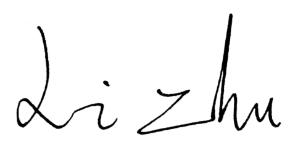 Li Zhu